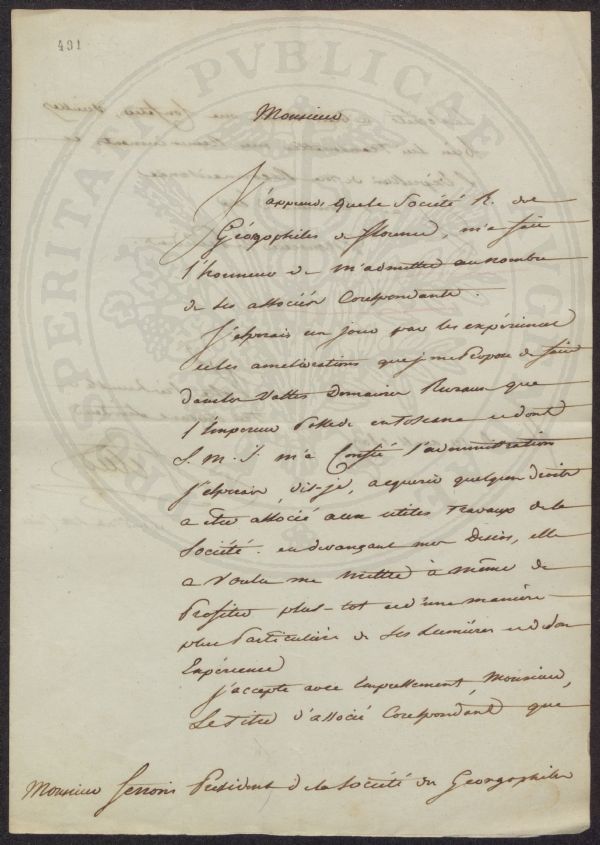 491
PROSPERITATI PUBLICAE AUGENDAE
Monsieur
J'apprends que la Société R. des
Géorgophiles de florence, m'a fait
l'honneur de m'admettre au nombre
de ses associés Corespondants.
J'espérais un jour par les expériences
et les améliorations que je me propose de faire
dans les Vastes Domaines Ruraux que
l'Empereur Possède en toscane et dont
S. M. I. m'a Confié l'administration
J'espérais, dis-je, acquerir quelques droits
a etre associé aux utiles travaux de la
Société. en devançant mes Desirs, elle
a Voulu me mettre à même de
Profiter plus-tot et d'une manière
plus Particulière de ses Lumières et de son
Expérience
j'accepte avec Empressement, Monsieur,
le titre d'associé Corespondant que
Monsieur Président de la Société des Georgophiles